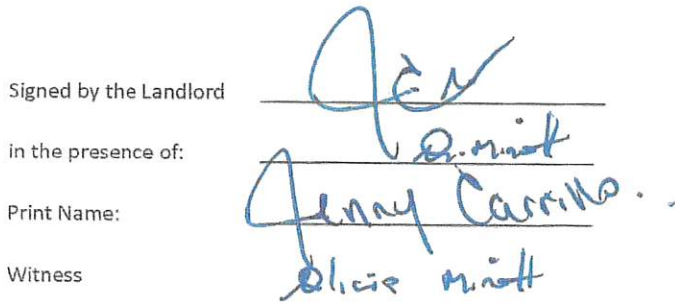 Signed by the Landlord JEN
in the presence of: A. Minott
Print Name: Jenny Carrillo.
Witness Alicia Minott